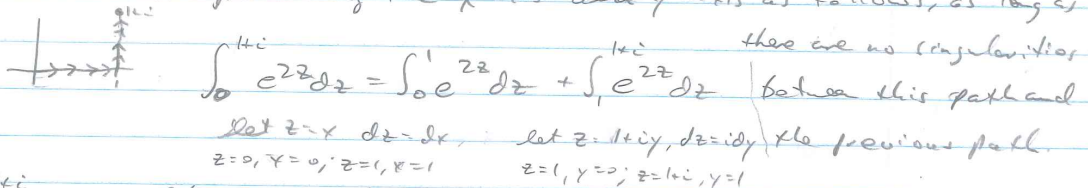 as follows, as long as
1+i
∫₀^{1+i} e^{2z} dz = ∫₀^1 e^{2z} dz + ∫₁^{1+i} e^{2z} dz
there are no singularities
between this path and
the previous path.
let z=x dz=dx, let z=1+iy, dz=idy
z=0, x=0; z=1, x=1 z=1, y=0; z=1+i, y=1